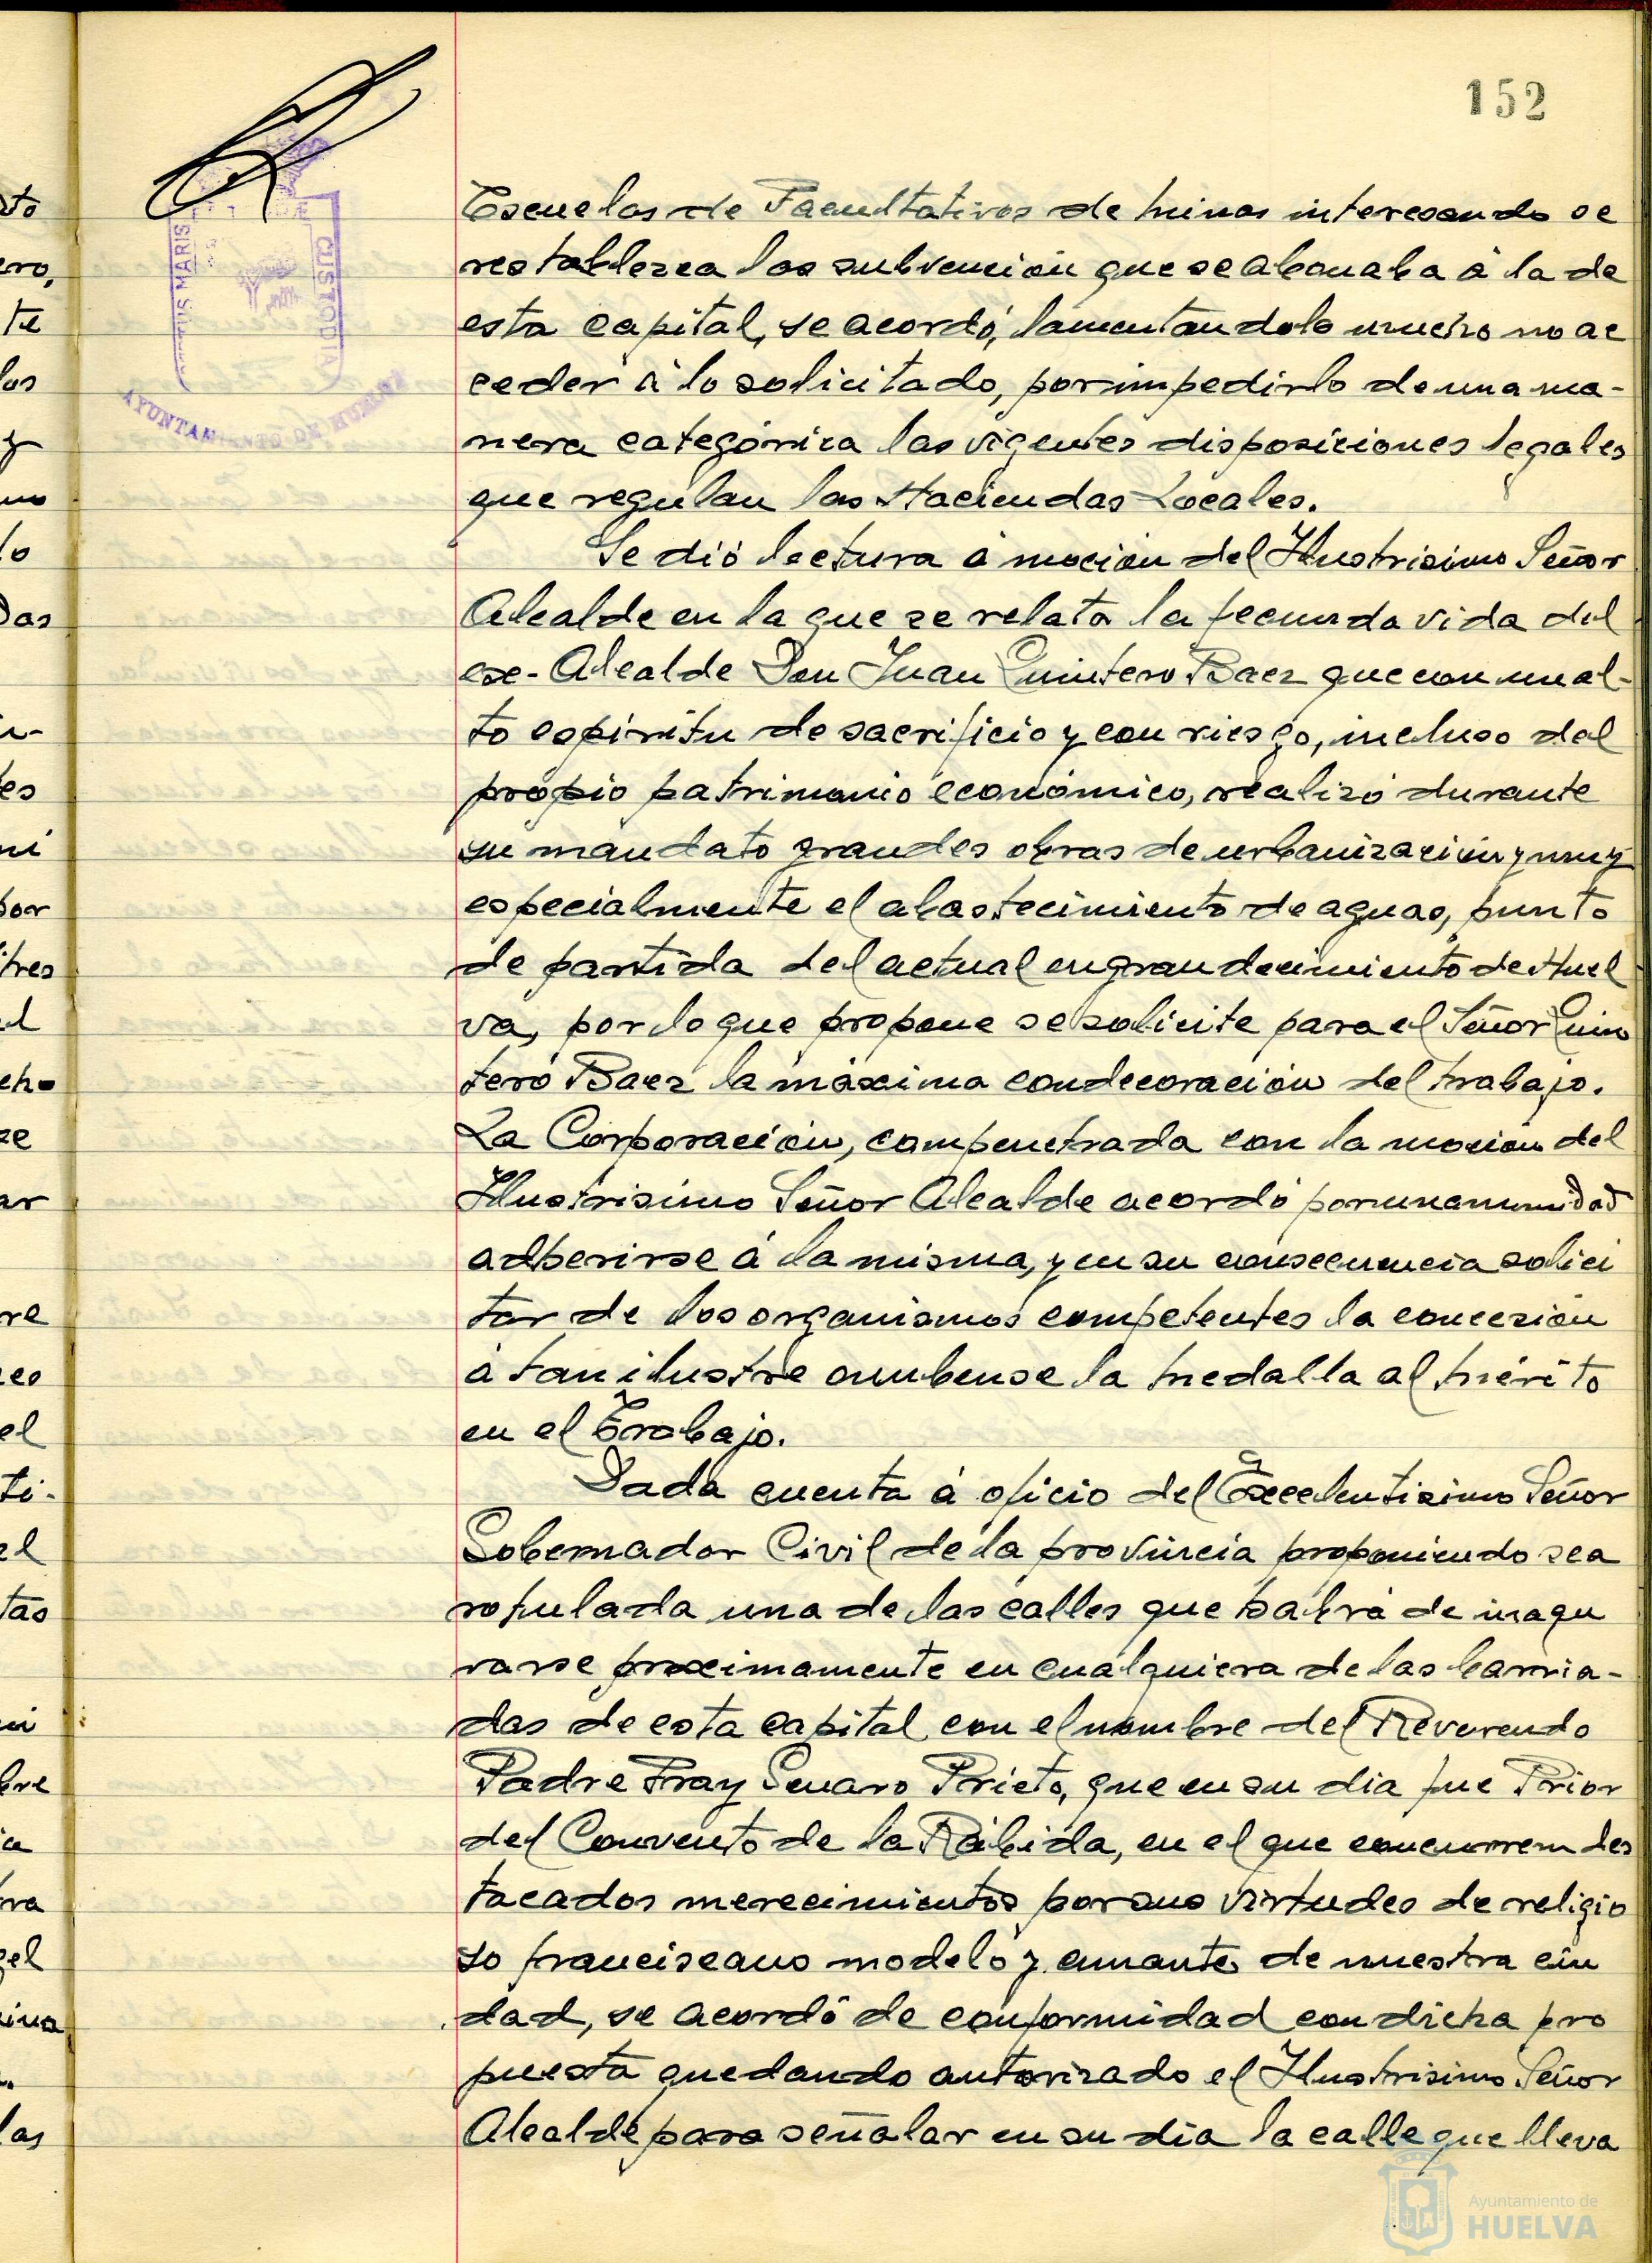 152
Escuelas de Facultativos de Minas interesando se
restablezca las subvención que se abonaba á la de
esta capital, se acordó, lamentándolo mucho no ac
ceder á lo solicitado, por impedirlo de una ma-
nera categórica las vigentes disposiciones legales
que regulan las Haciendas Locales.
Se dió lectura á moción del Ilustrisimo Señor
Alcalde en la que se relata la fecunda vida del
ex-Alcalde Don Juan Quintero Baez que con un al-
to espiritu de sacrificio y con riesgo, incluso del
propio patrimonio económico, realizó durante
su mandato grandes obras de urbanización y muy
especialmente el abastecimiento de aguas, punto
de partida del actual engrandecimiento de Huel
va, por lo que propone se solicite para el Señor Quin
tero Baez la máxima condecoración del trabajo.
La Corporación, compenetrada con la moción del
Ilustrisimo Señor Alcalde acordó por unanimidad
adherirse á la misma, y en su consecuencia solici
tar de los organismos competentes la concesión
á tan ilustre onubense la Medalla al Mérito
en el Trabajo.
Dada cuenta á oficio del Excelentisimo Señor
Gobernador Civil de la provincia proponiendo sea
rotulada una de las calles que habrá de inagu
rarse proximamente en cualquiera de las barria-
das de esta capital con el nombre del Reverendo
Padre Fray Genaro Prieto, que en su dia fue Prior
del Convento de la Rábida, en el que concurren des
tacados merecimientos por sus virtudes de religio
so franciscano modelo y amante de nuestra ciu
dad, se acordó de conformidad con dicha pro
puesta quedando autorizado el Ilustrisimo Señor
Alcalde para señalar en su dia la calle que lleva
MARIS
CUSTODIA
AYUNTAMIENTO DE HUELVA
Ayuntamiento de
HUELVA